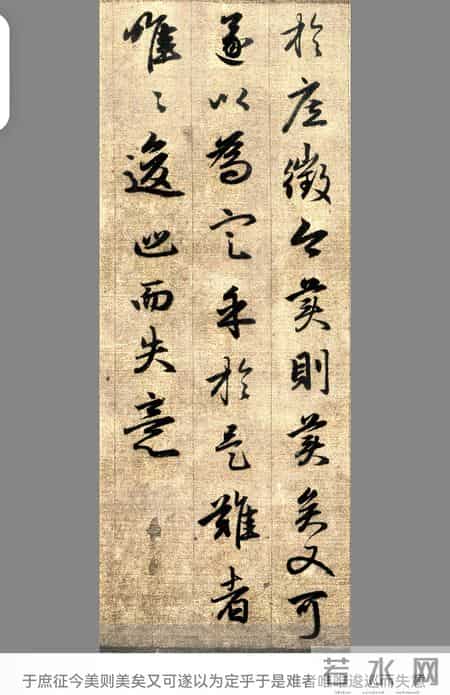 於庶徵今美則美矣又可
遂以為定乎於是難者
唯〻逡巡而失意
于庶征今美则美矣又可遂以为定乎于是难者唯唯逡巡而失意
若水网